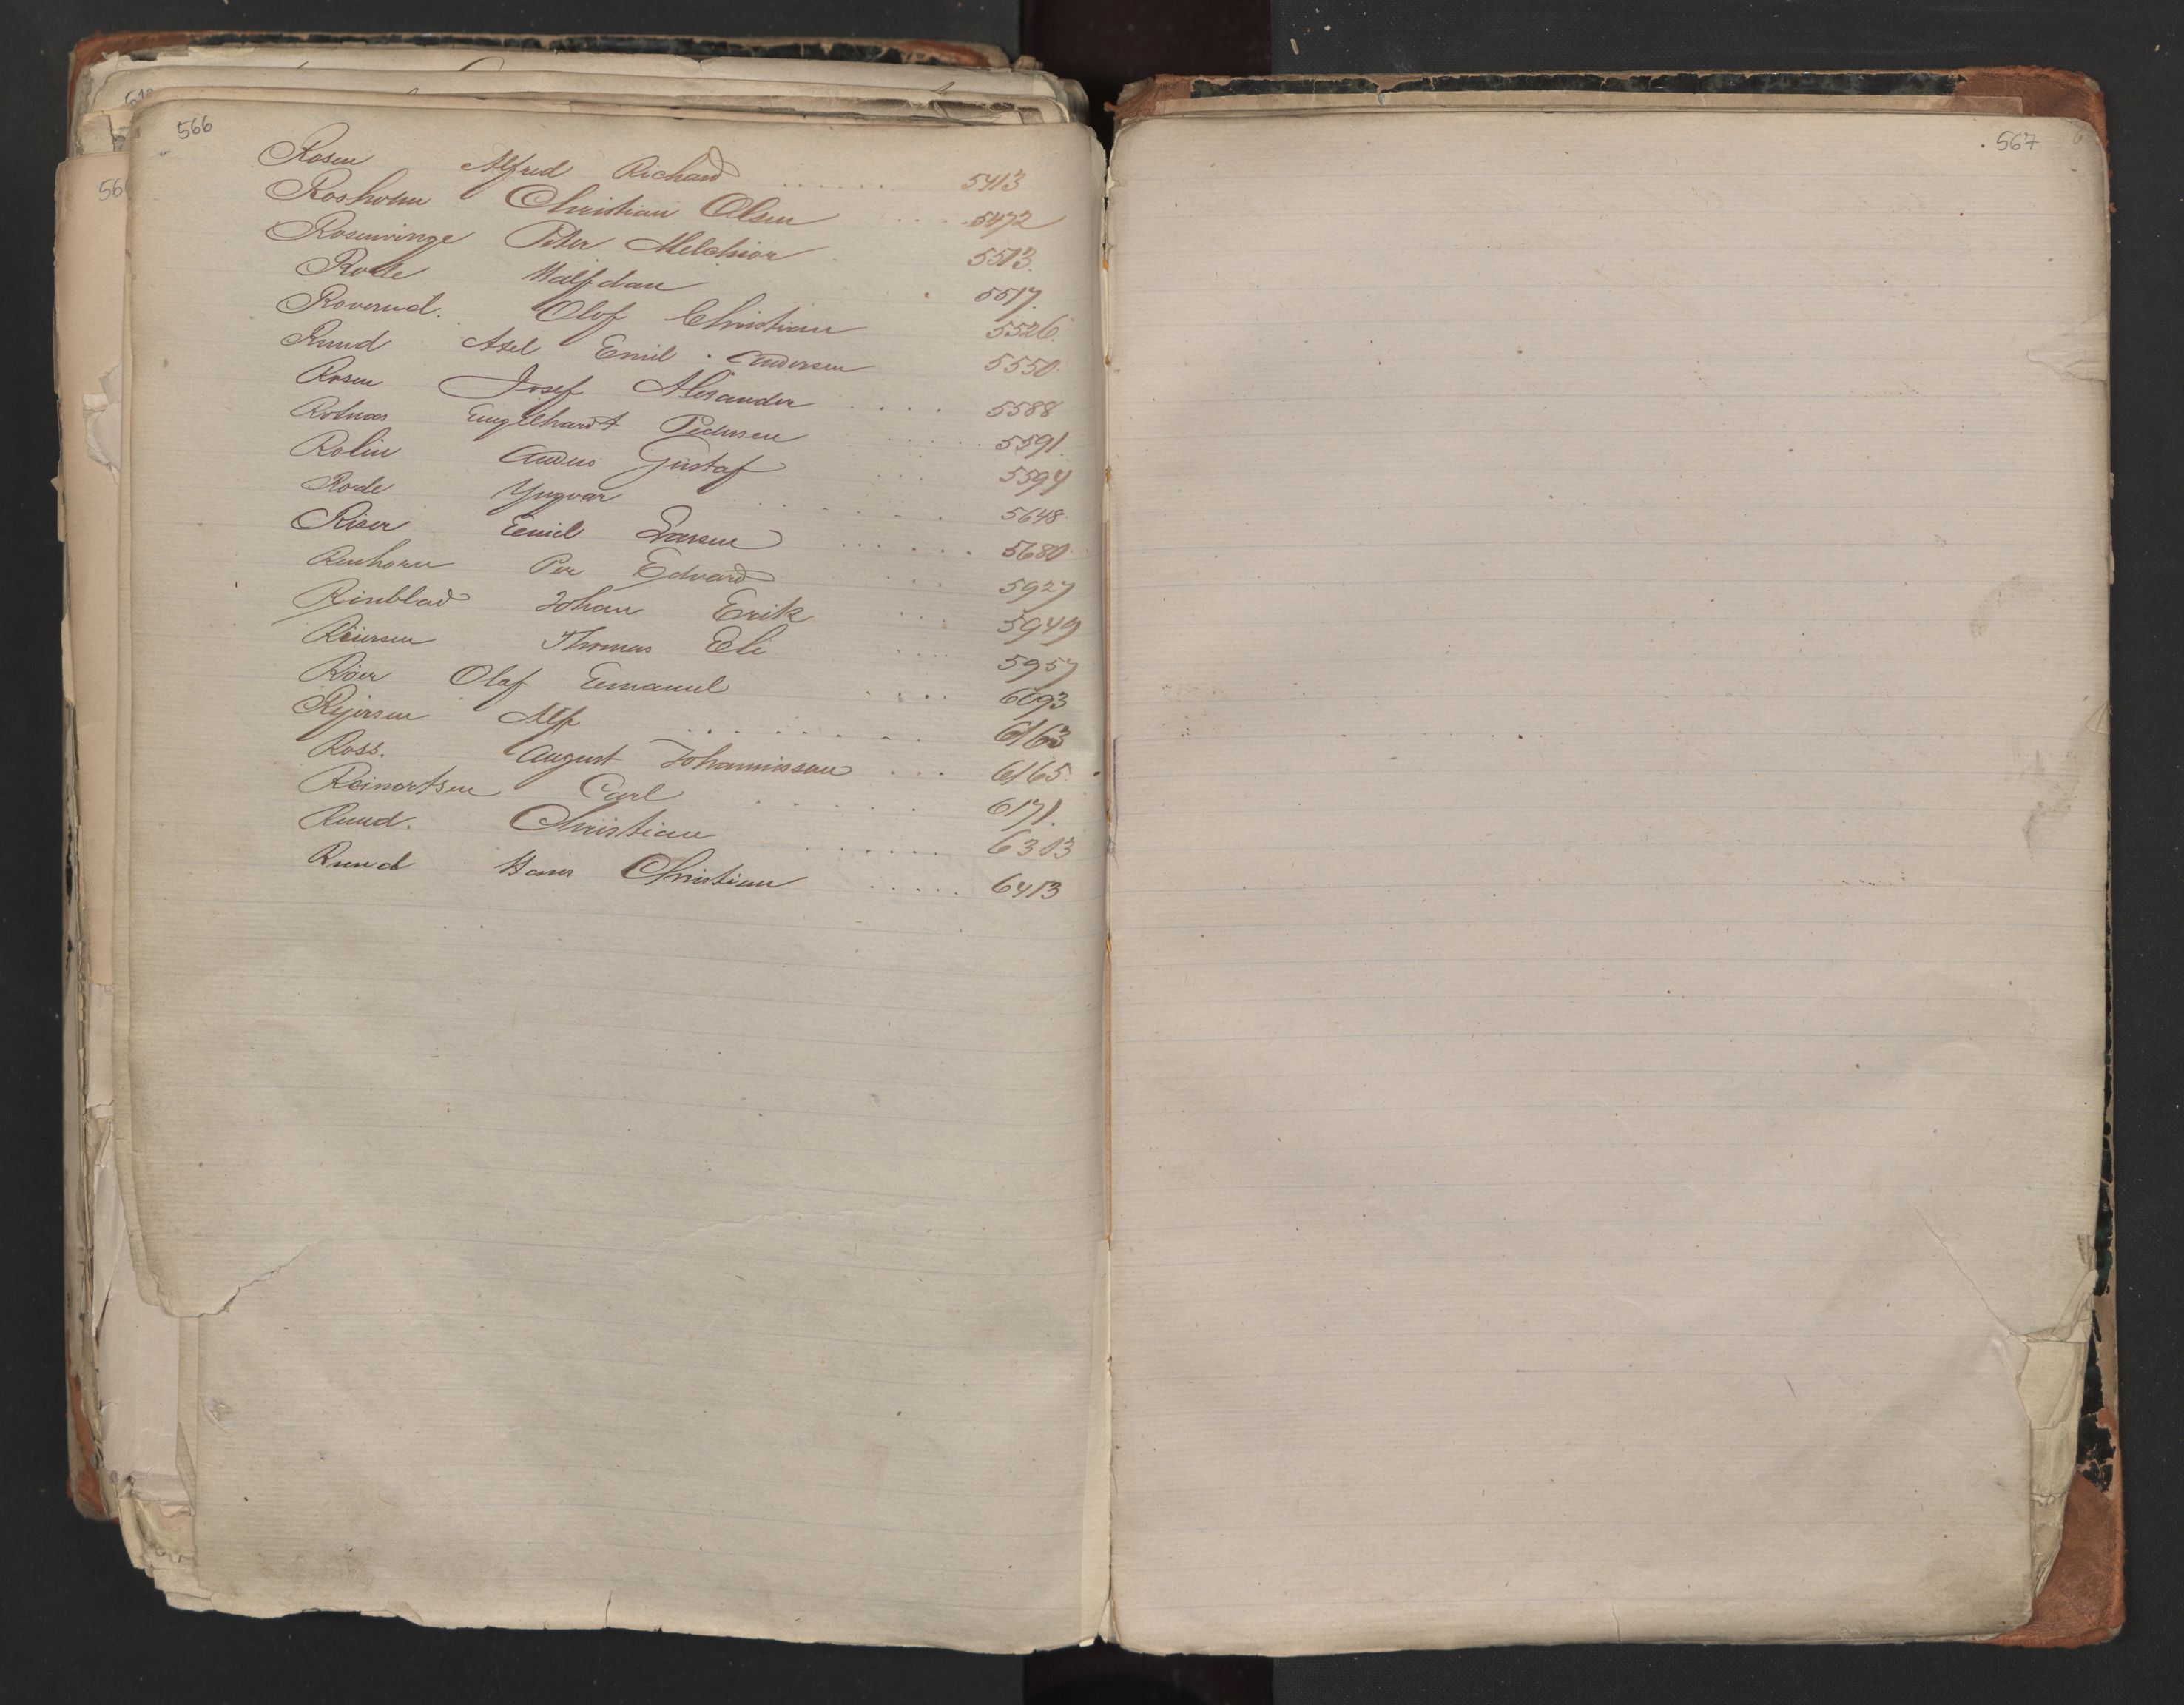 566
Rosen Alfred Richard ...... 5413
Rosholm Christian Olsen .... 5472
Rosenvinge Peter Melchior . 5513.
Rode Halfdan . 5517.
Roverud. Olof Christian 5526.
Ruud Axel Emil Andersen 5550.
Rosen Josef Alexander .... 5588
Rotnæs Engelhardt Pedersen ...... 5591.
Rolin Anders Gustaf ... 5594
Rode Yngvar ...... 5648.
Riser Emil Larsen ...... 5680.
Renhorn Per Edvard ... 5927
Rinblad Johan Erik .... 5949
Reiersen Thomas Eli .... 5957
Röer Olaf Emanuel .... 6093
Rejersen Alf ......... 6163
Ross. August Johannissen ... 6165.
Reinertsen Carl ...... 6171.
Ruud. Christian ...... 6303
Ruud Hans Christian ..... 6413
567